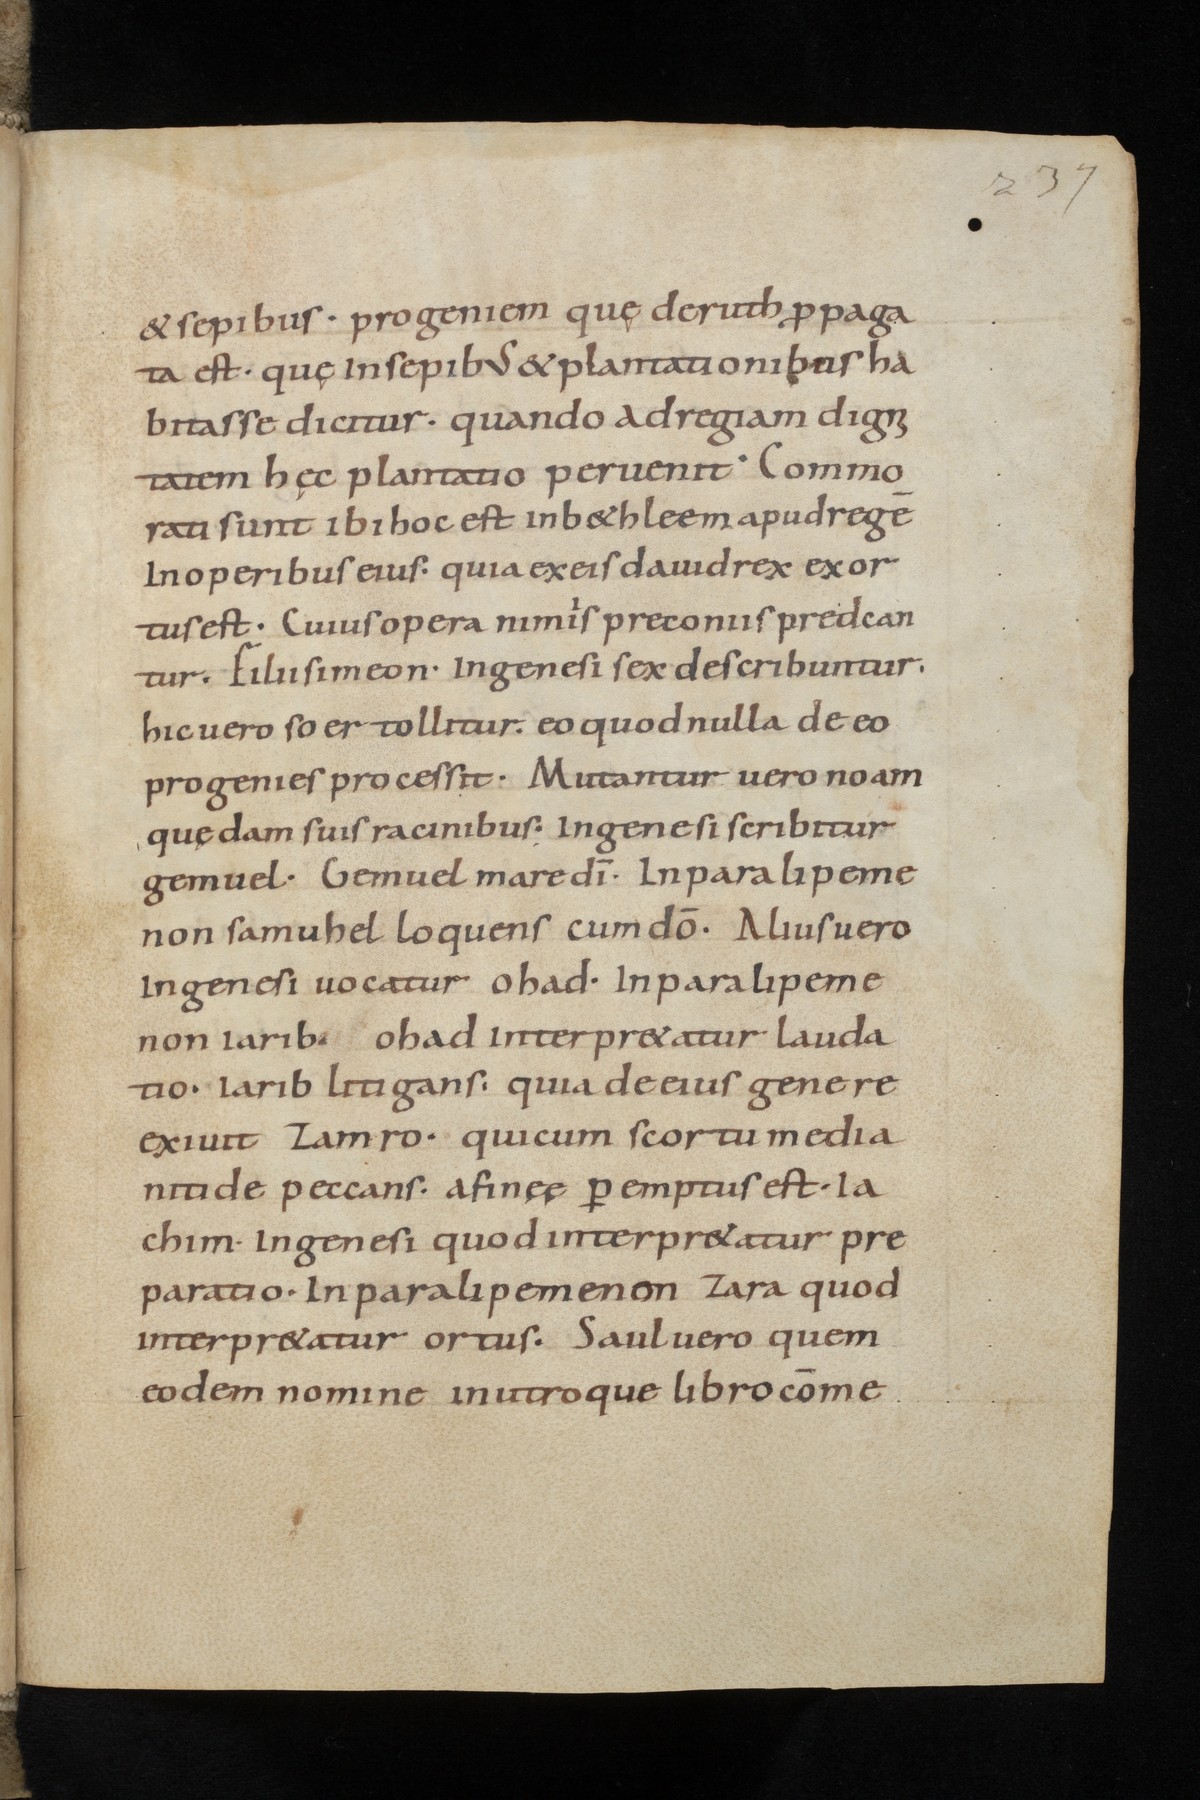 237
& sepibus · progeniem quę deruth ꝓpaga
ta est · quę Insepibus & plantationibus ha
bitasse dicitur · quando adregiam digni
tatem hęc plantatio peruenit · Commo
rati sunt ibi hoc est inb&hleem apudregē
Inoperibus eius · quia exeis dauid rex exor
tus est · Cuius opera nimis preconiis predcan
tur · Filii simeon · Ingenesi sex describuntur ·
hic uero soer tollitur · eo quod nulla de eo
progenies processit · Mutantur uero noam
quędam suis racinibus · Ingenesi scribitur
gemuel · Gemuel mare dī · Inparalipeme
non samuhel loquens cum dō · Alius uero
Ingenesi uocatur ohad · Inparalipeme
non Iarib · ohad Interpr&atur lauda
tio · Iarib litigans · quia de eius genere
exiuit Zamro · qui cum scortu media
nitide peccans · afinęę ꝑemptus est · Ia
chim · Ingenesi quod interpr&atur pre
paratio · Inparalipemenon Zara quod
interpr&atur ortus · Saul uero quem
eodem nomine inutroque libro cōme